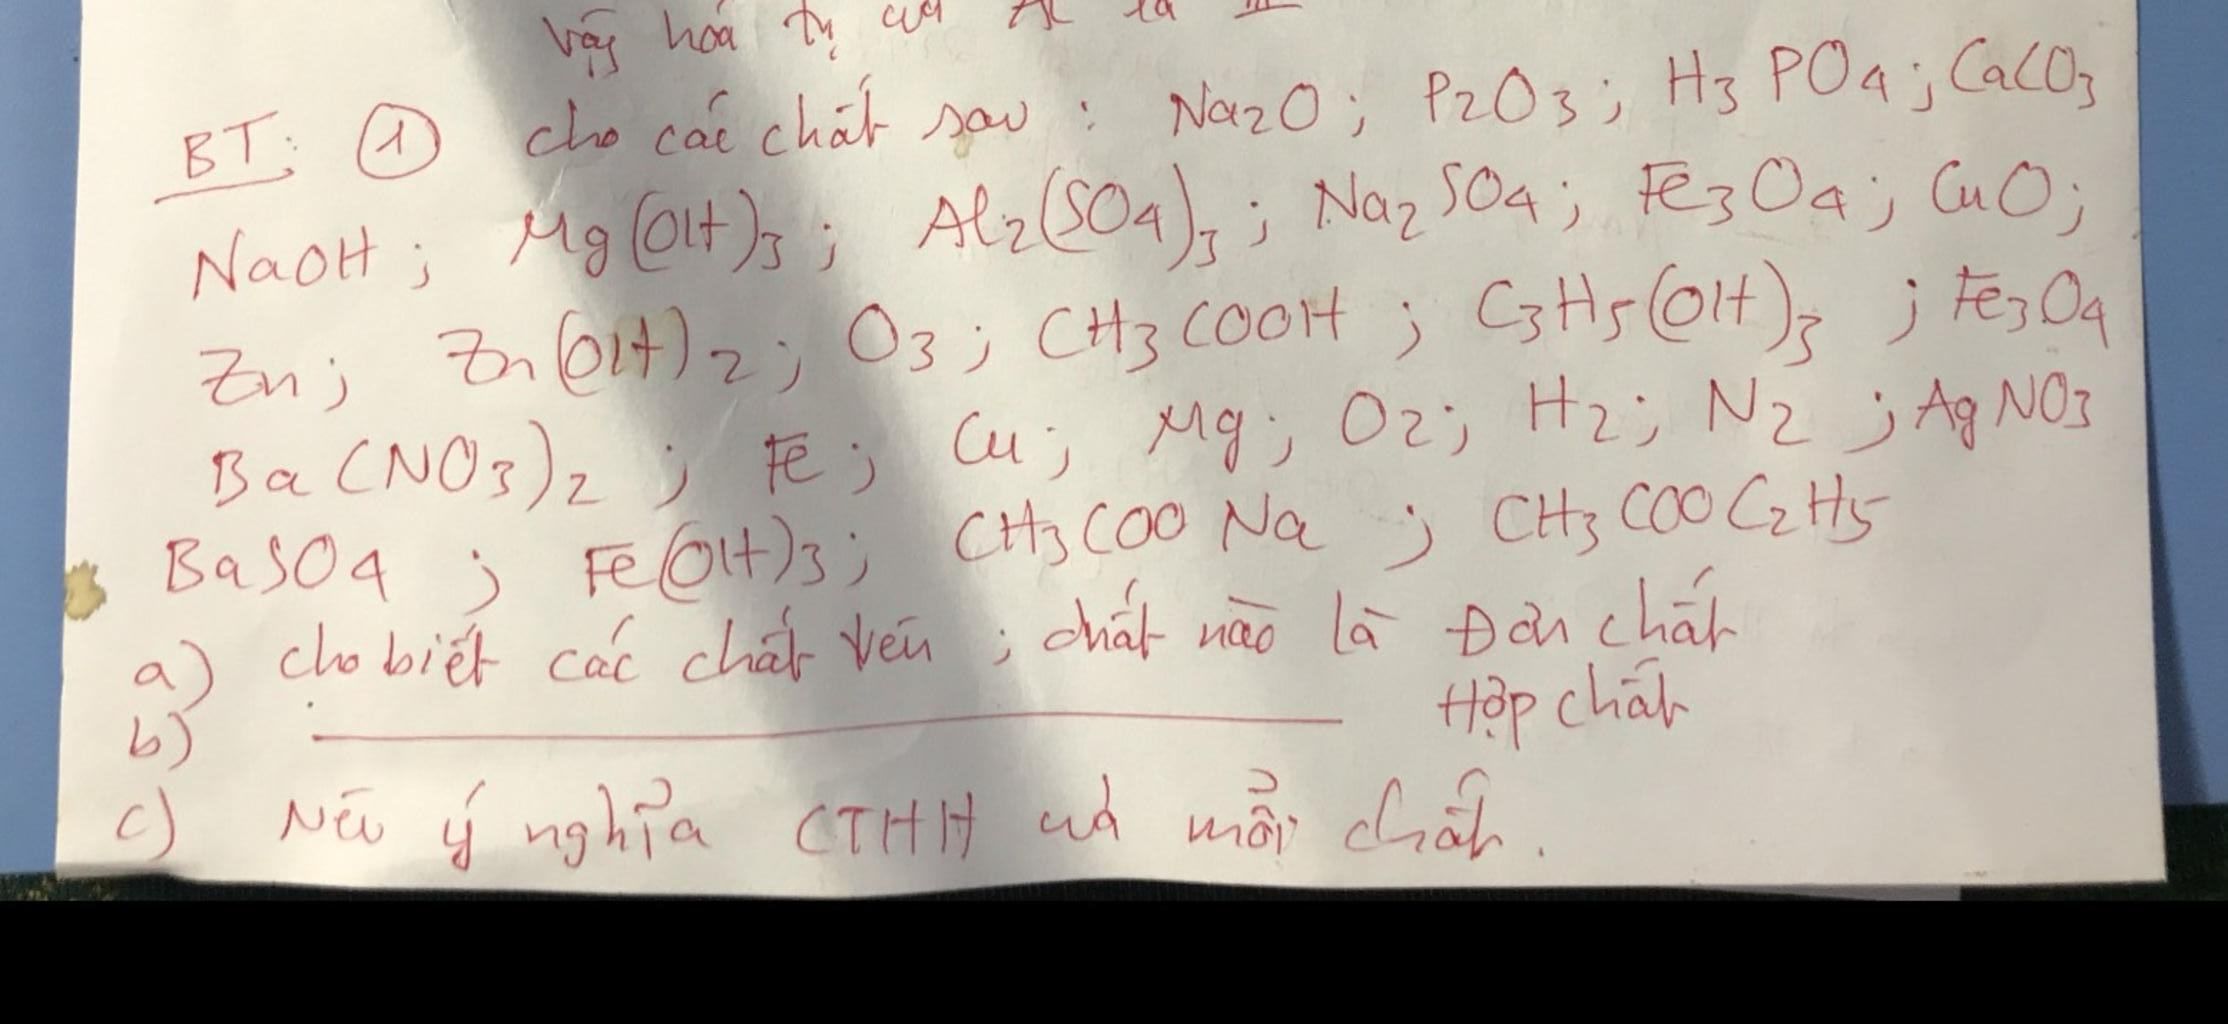 vậy hoá trị của Al là III
BT: ① cho các chất sau : Na2O; P2O3; H3PO4; CaCO3
NaOH; Mg(OH)3; Al2(SO4)3; Na2SO4; Fe3O4; CuO;
Zn; Zn(OH)2; O3; CH3COOH; C3H5(OH)3; Fe3O4
Ba(NO3)2; Fe; Cu; Mg; O2; H2; N2; AgNO3
BaSO4; Fe(OH)3; CH3COONa; CH3COOC2H5
a) cho biết các chất trên; chất nào là Đơn chất
b) Hợp chất
c) Nêu ý nghĩa CTHH của mỗi chất.